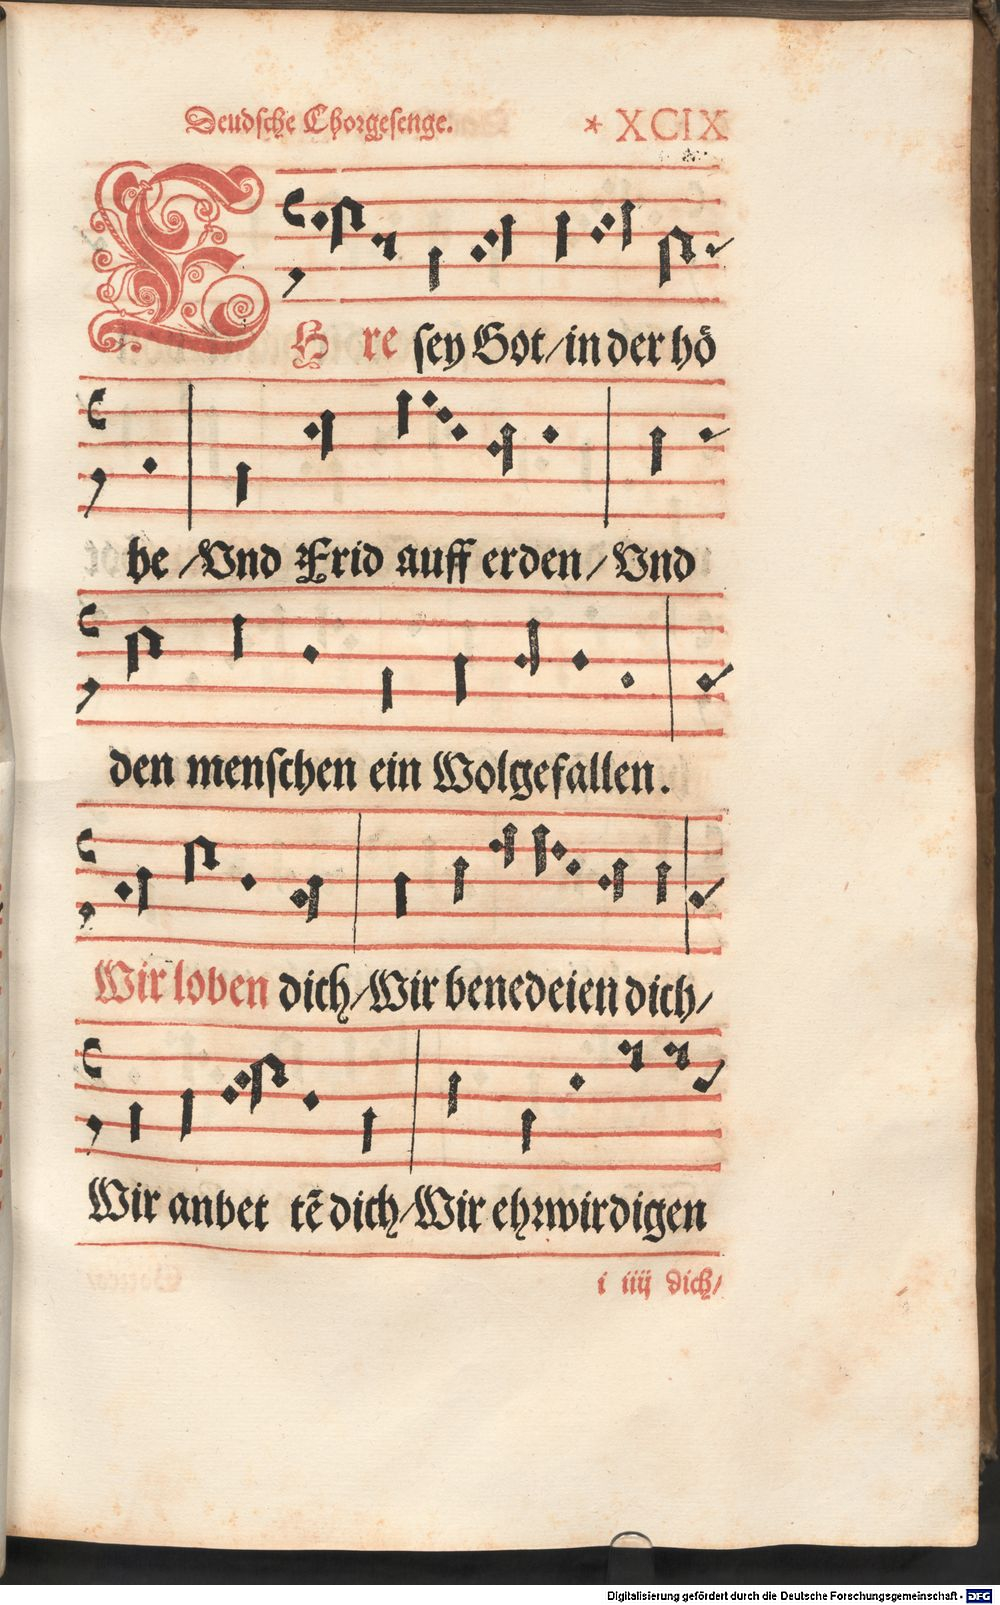 Deudsche Chorgesenge. * XCIX
EH re sey Got/ in der hö
he / Vnd Frid auff erden / Vnd
den menschen ein Wolgefallen.
Wir loben dich/ Wir benedeien dich/
Wir anbet tẽ dich/ Wir ehrwirdigen
i iiij dich/
Digitalisierung gefördert durch die Deutsche Forschungsgemeinschaft - DFG